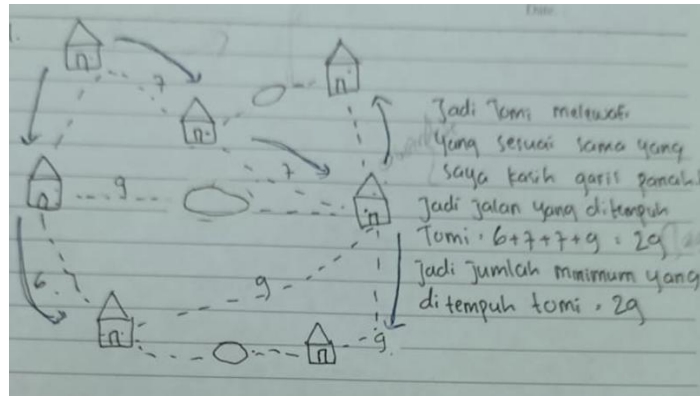 1.
7
7
9
6
9
9.
Jadi Tomi melewati
yang sesuai sama yang
saya kasih garis panah.
Jadi jalan yang ditempuh
Tomi. 6+7+7+9 = 29
Jadi jumlah minimum yang
ditempuh tomi. 29